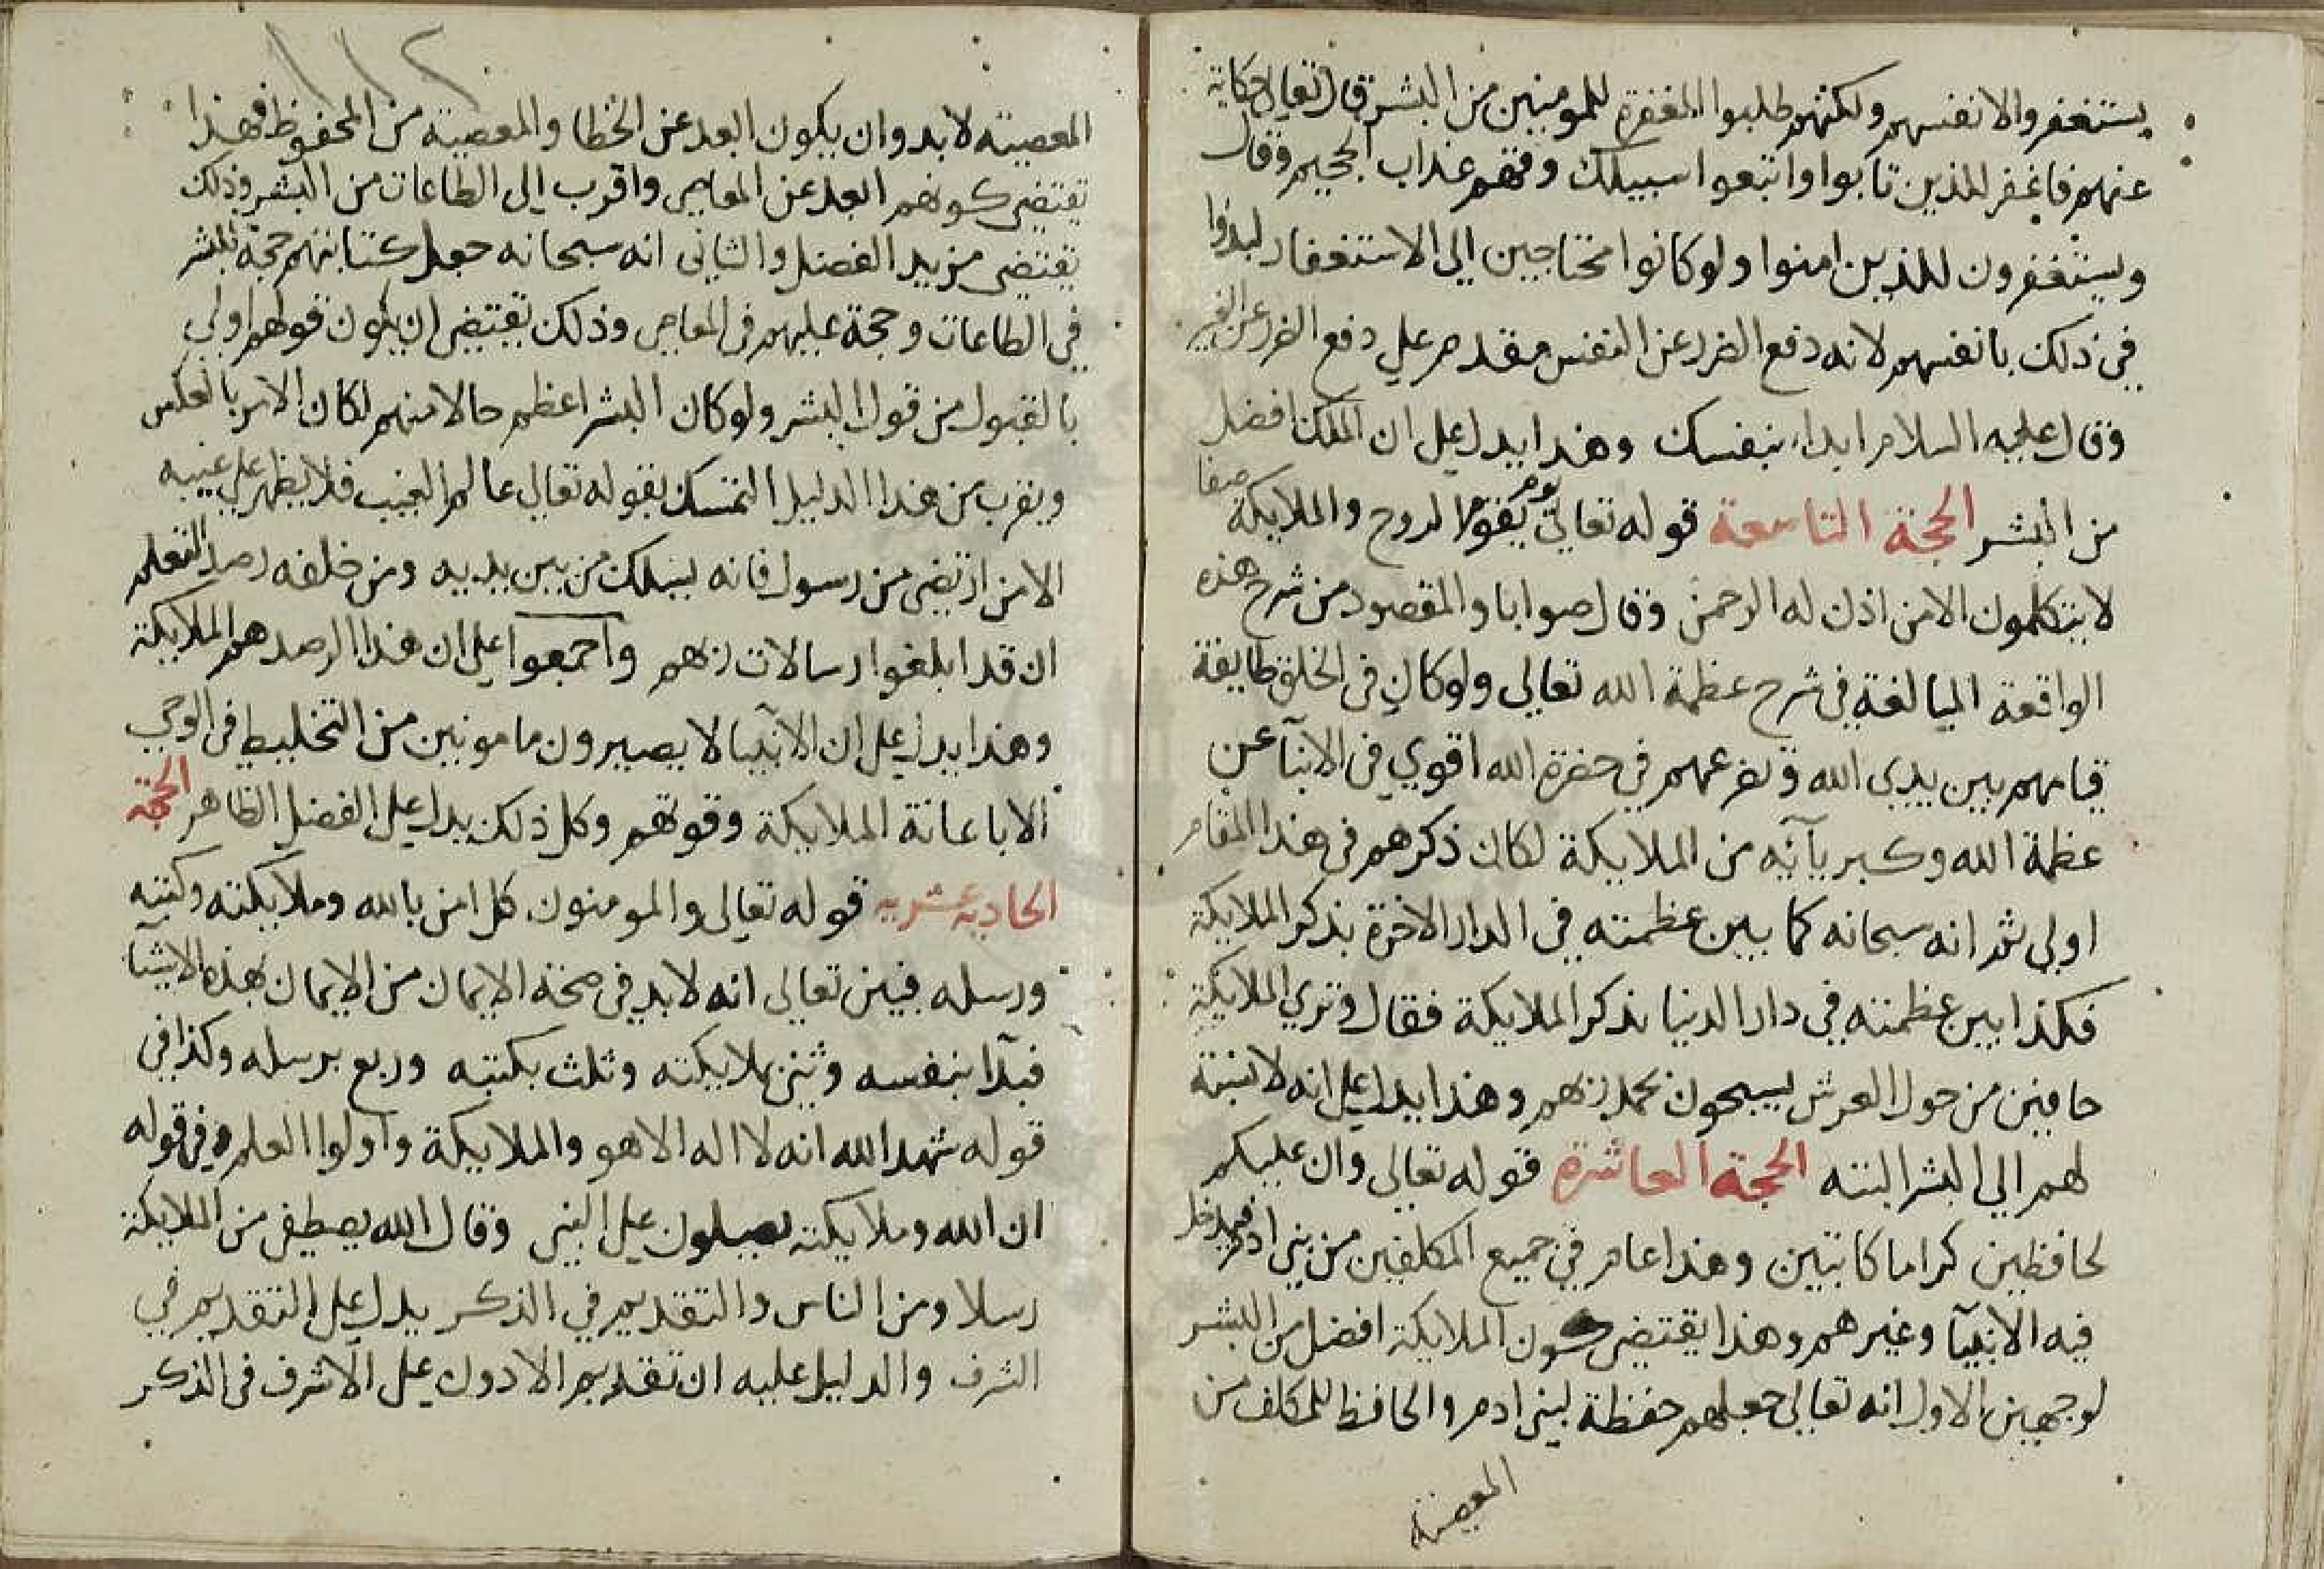 يستغفروا لانفسهم ولكنهم طلبوا المغفرة للمومنين من البشر قال تعالى حكاية
عنهم فاغفر للذين تابوا واتبعوا سبيلك وقهم عذاب الجحيم وقال
ويستغفرون للذين امنوا ولو كانوا محتاجين الى الاستغفار لبدوا
في ذلك بانفسهم لانه دفع الضرر عن النفس مقدم علي دفع الضرر عن الغير
وقال عليه السلام ابداء بنفسك وهذا يدل على ان الملك افضل
من البشر الحجة التاسعة قوله تعالى يوم يقوم الروح والملايكة صفا
لا يتكلمون الا من اذن له الرحمن وقال صوابا والمقصود من شرح هذه
الواقعة المبالغة في شرح عظمة الله تعالى ولو كان في الخلق طايفة
قيامهم بين يدي الله وتضرعهم في حضرة الله اقوي في الانبآ عن
عظمة الله وكبريآئه من الملايكة لكان ذكرهم في هذا المقام
اولى ثم انه سبحانه كما بين عظمته في الدار الاخرة بذكر الملايكة
فكذا بين عظمته في دار الدنيا بذكر الملايكة فقال وتري الملايكة
حافين من حول العرش يسبحون بحمد ربهم وهذا يدل على انه لا نسبة
لهم الى البشر البتة الحجة العاشرة قوله تعالى وان عليكم
لحافظين كراما كاتبين وهذا عام في جميع المكلفين من بني ادم فيدخل
فيه الانبيآ وغيرهم وهذا يقتضي كون الملايكة افضل من البشر
لوجهين الاول انه تعالى جعلهم حفظة لبني ادم والحافظ للمكلف من
المعصية
١١٢
المعصية لا بد وان يكون ابعد عن الخطا والمعصية من المحفوظ فهذا
يقتضي كونهم ابعد عن المعاصي واقرب الى الطاعات من البشر وذلك
يقتضي مزيد الفضل والثاني انه سبحانه جعل كتابتهم حجة للبشر
في الطاعات وحجة عليهم في المعاصي وذلك يقتضي ان يكون قولهم اولى
بالقبول من قول البشر ولو كان البشر اعظم حالا منهم لكان الامر بالعكس
ويقرب من هذا الدليل التمسك بقوله تعالى عالم الغيب فلا يظهر على غيبه
الا من ارتضى من رسول فانه يسلك من بين يديه ومن خلفه رصدا ليعلم
ان قد ابلغوا رسالات ربهم واجمعوا على ان هذا الرصد هم الملايكة
وهذا يدل على ان الانبيآ لا يصيرون مامونين من التخليط في الوحي
الا باعانة الملايكة وقوتهم وكل ذلك يدل على الفضل الظاهر الحجة
الحادية عشرية قوله تعالى والمومنون كل امن بالله وملايكته وكتبه
ورسله فبين تعالى انه لا بد في صحة الايمان من الايمان بهذه الاشيآ
فبدآ بنفسه وثنى بملايكته وثلث بكتبه وربع برسله وكذا في
قوله شهد الله انه لا اله الا هو والملايكة واولوا العلم وفي قوله
ان الله وملايكته يصلون على النبي وقال الله يصطفي من الملايكة
رسلا ومن الناس والتقديم في الذكر يدل على التقديم في
الشرف والدليل عليه ان تقديم الادون على الاشرف في الذكر